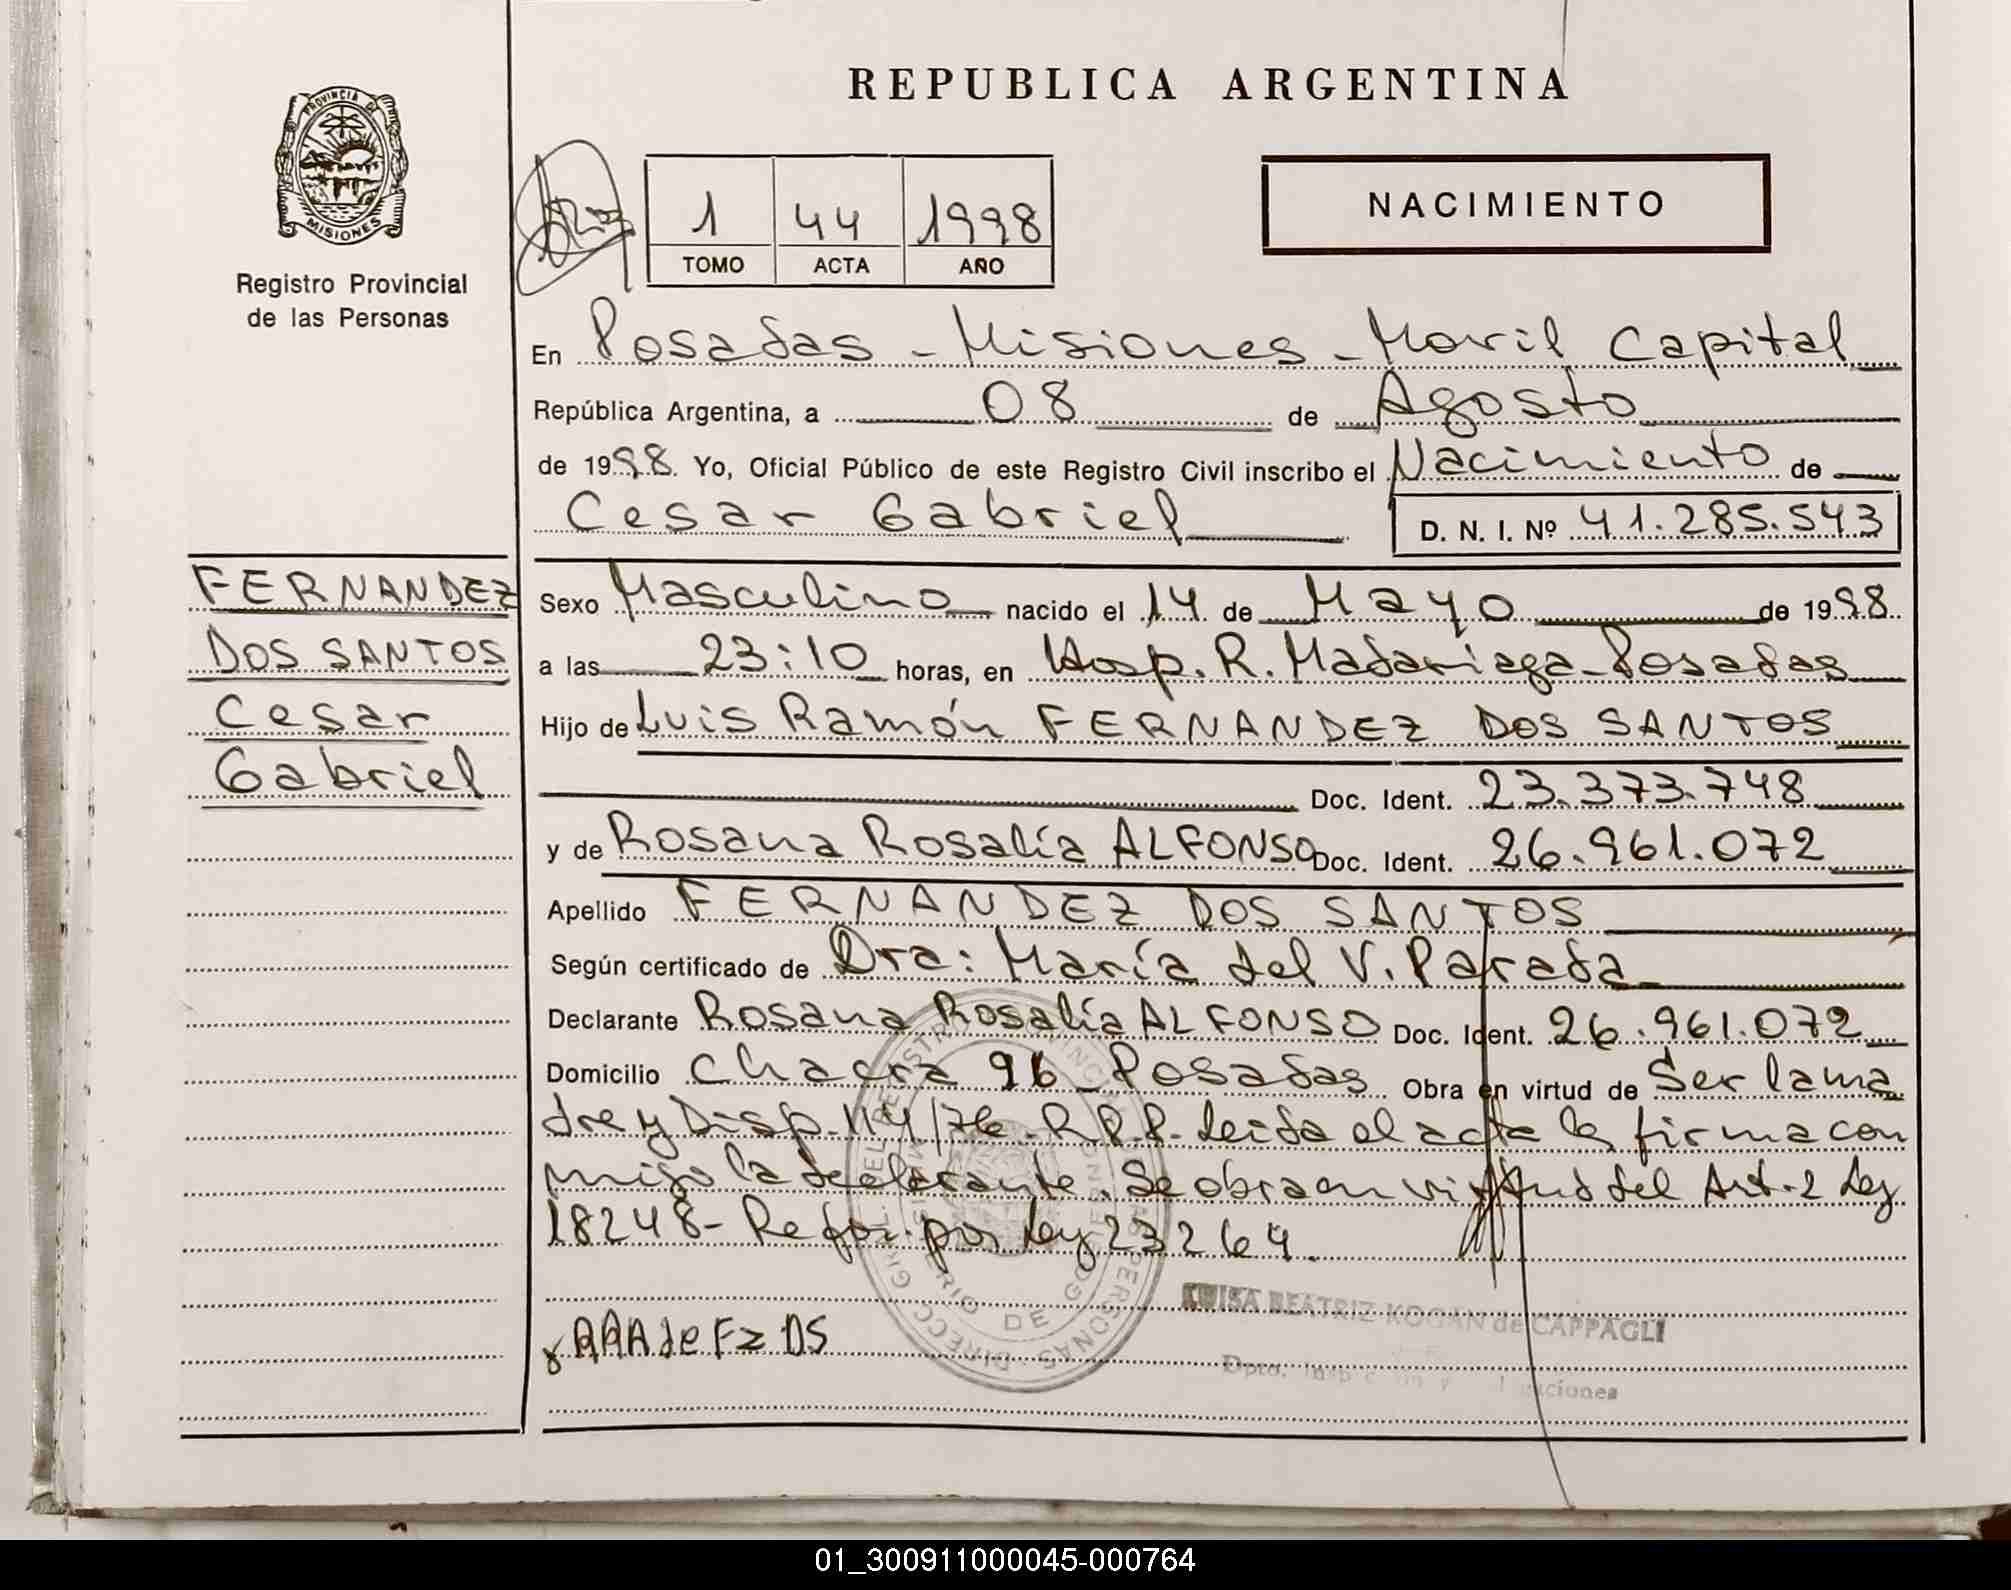 REPUBLICA ARGENTINA
PROVINCIA DE
MISIONES
Registro Provincial
de las Personas
1 44 1998
TOMO ACTA AÑO
NACIMIENTO
En Posadas - Misiones - Movil Capital
República Argentina, a 08 de Agosto
de 1998. Yo, Oficial Público de este Registro Civil inscribo el Nacimiento de
Cesar Gabriel D. N. I. Nº 41.285.543
FERNANDEZ
DOS SANTOS
Cesar
Gabriel
Sexo Masculino nacido el 14 de Mayo de 1998.
a las 23:10 horas, en Hosp. R. Madariaga - Posadas
Hijo de Luis Ramón FERNANDEZ DOS SANTOS
Doc. Ident. 23.373.748
y de Rosana Rosalía ALFONSO Doc. Ident. 26.961.072
Apellido FERNANDEZ DOS SANTOS
Según certificado de Dra: María del V. Parada
Declarante Rosana Rosalía ALFONSO Doc. Ident. 26.961.072
Domicilio Chacra 96 - Posadas Obra en virtud de Ser la ma
dre y Disp. 114/76 - R.P.P. Leida el acta la firma con
migo la declarante. Se obra en virtud del Art. 2 Ley
18248 - Refor. por Ley 23264.
LUISA BEATRIZ KOGAN de CAPPAGLI
Dpto.
RAA de Fz DS
01_300911000045-000764